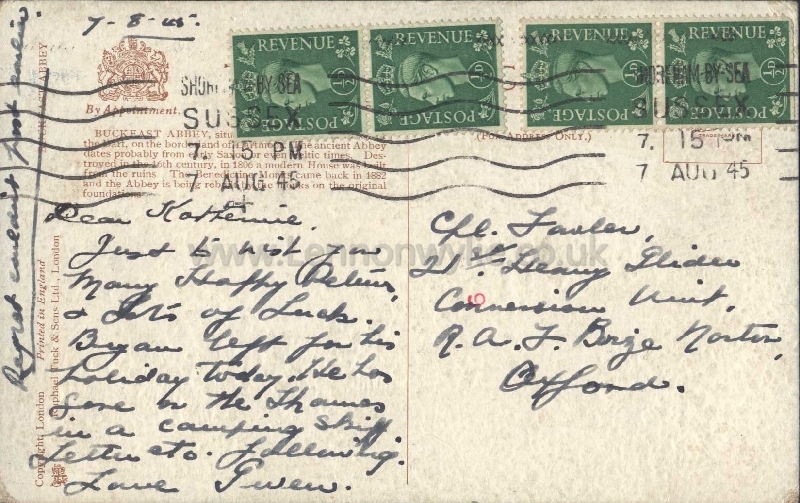 7-8-45.
By Appointment.
REVENUE
½D
POSTAGE
REVENUE
½D
POSTAGE
REVENUE
½D
POSTAGE
REVENUE
½D
POSTAGE
SHOREHAM-BY-SEA
SUSSEX
7. 15 PM
7 AUG 45
SHOREHAM-BY-SEA
SUSSEX
7. 15 PM
7 AUG 45
(FOR ADDRESS ONLY.)
BUCKFAST ABBEY, situ
the Dart, on the borders of Dartmoor, the ancient Abbey
dates probably from early Saxon times. Des-
troyed in the 16th century, in 1806 a modern House was built
from the ruins. The Benedictine Monks came back in 1882
and the Abbey is being rebuilt by the Monks on the original
foundations.
Dear Katherine,
Just to wish you
Many Happy Returns,
& Lots of Luck.
Bryan left for his
holiday today. He has
gone on the Thames
in a camping skiff.
Letter etc. following.
Love Gwen.
Cpl. Fowler,
21st Heavy Glider
Conversion Unit,
R.A.F. Brize Norton,
Oxford.
6
Regret couldn't post earlier.
BUCKFAST ABBEY
Copyright, London Printed in England
Raphael Tuck & Sons Ltd., London
www.Lennonwylie.co.uk